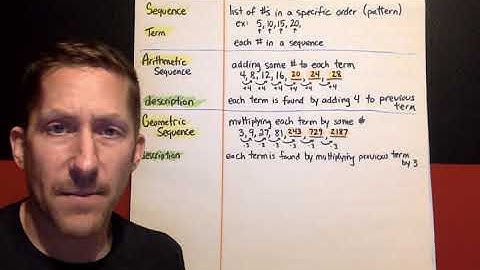 Sequence list of #s in a specific order (pattern)
ex: 5, 10, 15, 20,
Term each # in a sequence
Arithmetric adding same # to each term
Sequence 4, 8, 12, 16, 20, 24, 28
+4 +4 +4 +4 +4 +4
description each term is found by adding 4 to previous
term
Geometric multiplying each term by same #
Sequence 3, 9, 27, 81, 243, 729, 2187
·3 ·3 ·3 ·3 ·3 ·3
description each term is found by multiplying previous term
by 3